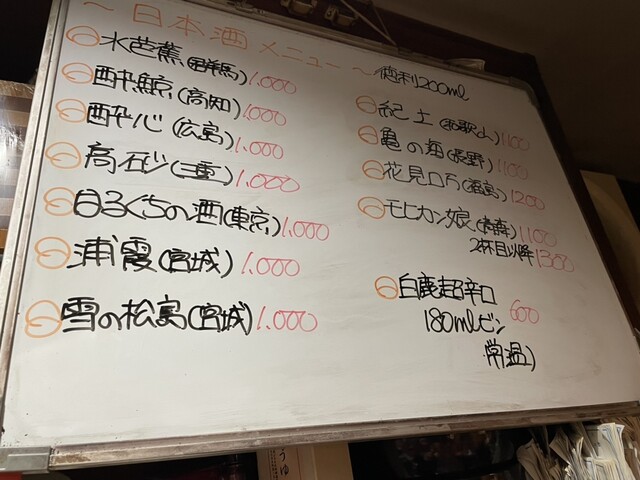 ～日本酒メニュー～
徳利200ml
水芭蕉(群馬)1.000
酔鯨(高知)1.000
酔心(広島)1.000
高砂(三重)1.000
白ろくちの酒(東京)1.000
浦霞(宮城)1.000
雪の松島(宮城)1.000
紀土(和歌山)1100
亀の海(長野)1100
花見ロ万(福島)1200
モヒカン娘(青森)1100
2杯目以降1300
白鹿超辛口 600
180mlビン
常温)
うゆ